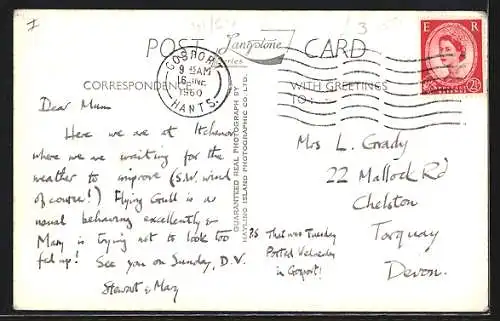 I
POST Lansystone Series CARD
GOSPORT
9 15AM
16 JNE
1960
HANTS.
E R
2½D
CORRESPONDENCE
WITH GREETINGS
TO:
GUARANTEED REAL PHOTOGRAPH BY
HAYLING ISLAND PHOTOGRAPHIC CO. LTD.
Dear Mum
Here we are at Itchenor
where we are waiting for the
weather to improve (S.W. wind
of course!) Flying Gull is as
usual behaving excellently &
Mary is trying not to look too
fed up! See you on Sunday, D.V.
Stewart & Mary
PS That was Tuesday
Posted Wednesday
in Gosport!
Mrs L. Grady
22 Mallock Rd
Chelston
Torquay
Devon.